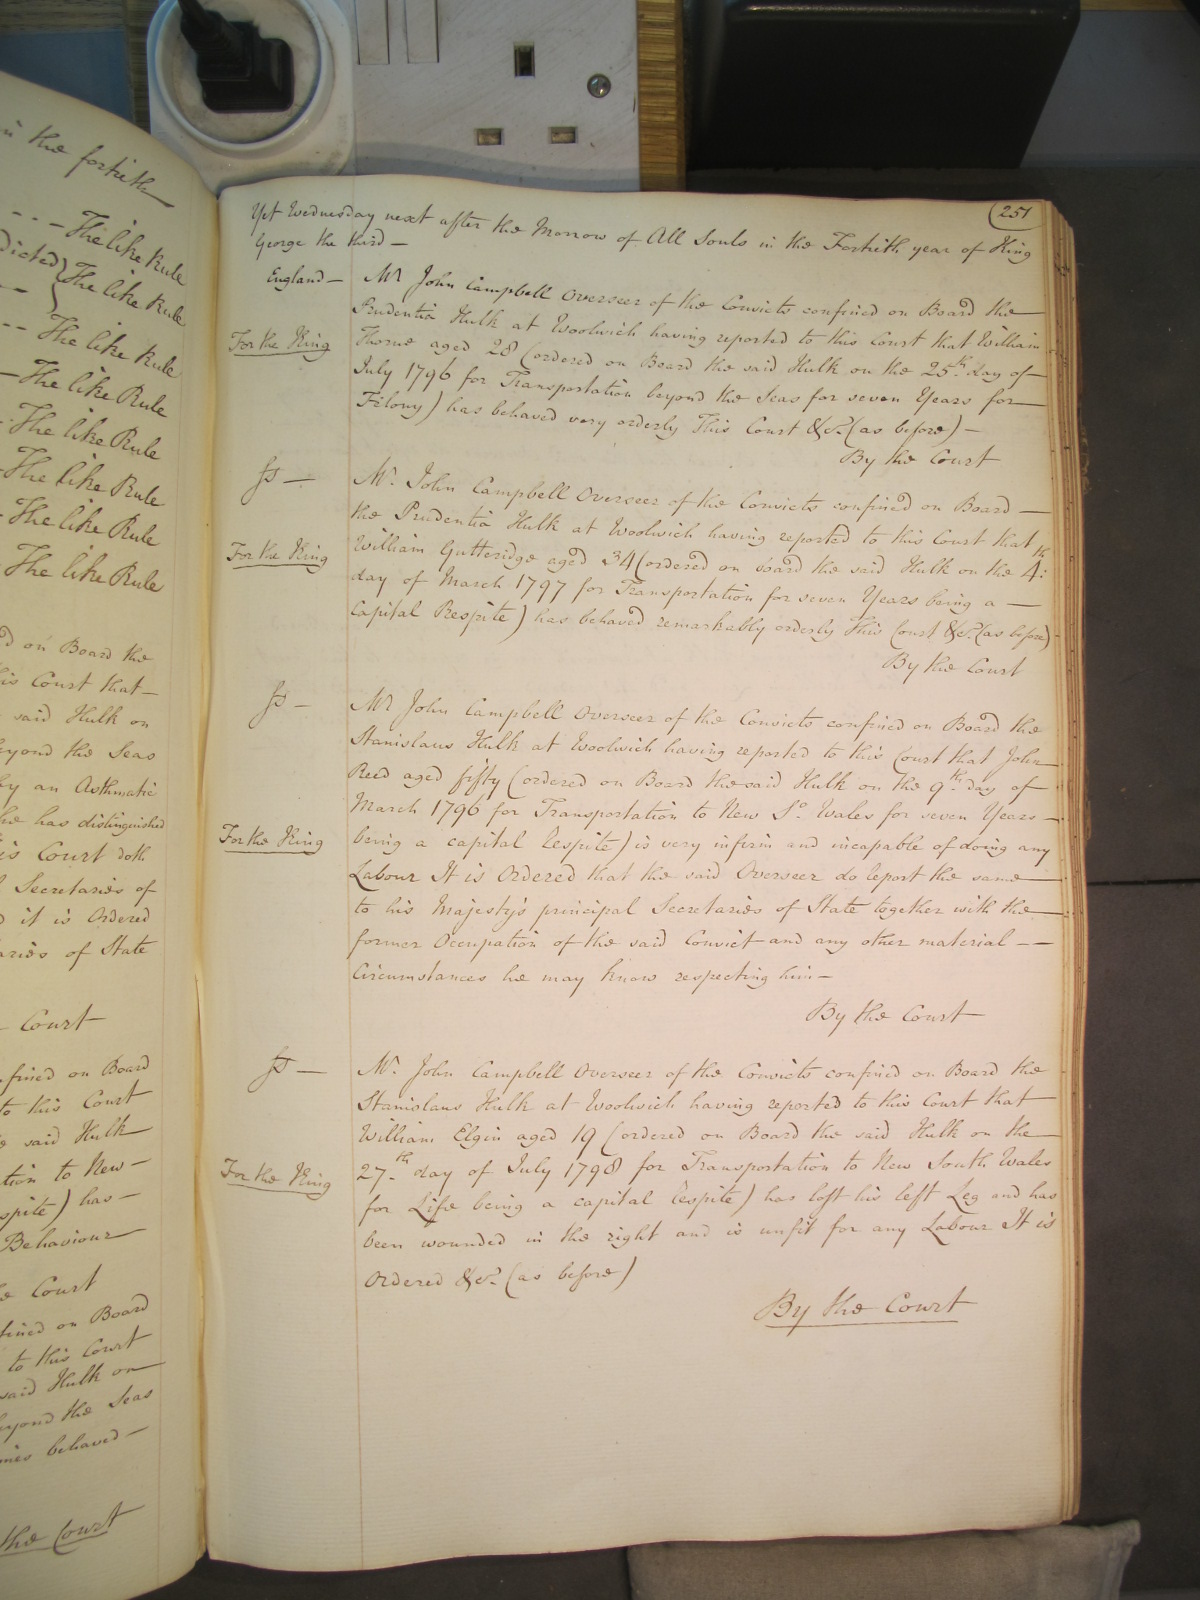 in the fortieth
The like Rule
dicted } The like Rule
The like Rule
The like Rule
The like Rule
The like Rule
The like Rule
The like Rule
d on Board the
his Court that
said Hulk on
eyond the Seas
by an Asthmatic
he has distinguished
is Court doth
Secretaries of
d it is Ordered
taries of State
Court
fined on Board
to this Court
said Hulk
tion to New
spite) has
Behaviour
e Court
fined on Board
to this Court
said Hulk on
eyond the Seas
behaved
the Court
251
Yet Wednesday next after the Morrow of All Souls in the Fortieth year of King
George the third —
England — Mr John Campbell Overseer of the Convicts confined on Board the
Prudentia Hulk at Woolwich having reported to this Court that William
For the King Thorne aged 28 (ordered on Board the said Hulk on the 25th day of
July 1796 for Transportation beyond the Seas for seven Years for
Felony) has behaved very orderly This Court &c. (as before) —
By the Court
ss — Mr. John Campbell Overseer of the Convicts confined on Board —
the Prudentia Hulk at Woolwich having reported to this Court that
For the King William Gutteridge aged 34 (ordered on board the said Hulk on the 4th
day of March 1797 for Transportation for seven Years being a —
Capital Respite) has behaved remarkably orderly This Court &c. (as before)
By the Court
ss — Mr John Campbell Overseer of the Convicts confined on Board the
Stanislaus Hulk at Woolwich having reported to this Court that John
Reed aged fifty (ordered on Board the said Hulk on the 9th day of
March 1796 for Transportation to New So. Wales for seven Years —
For the King being a capital Respite) is very infirm and incapable of doing any
Labour It is Ordered that the said Overseer do report the same
to his Majesty's principal Secretaries of State together with the
former Occupation of the said Convict and any other material —
Circumstances he may know respecting him —
By the Court
ss — Mr. John Campbell Overseer of the Convicts confined on Board the
Stanislaus Hulk at Woolwich having reported to this Court that
William Elgin aged 19 (ordered on Board the said Hulk on the
For the King 27th day of July 1798 for Transportation to New South Wales
for Life being a capital Respite) has lost his left Leg and has
been wounded in the right and is unfit for any Labour It is
Ordered &c. (as before)
By the Court